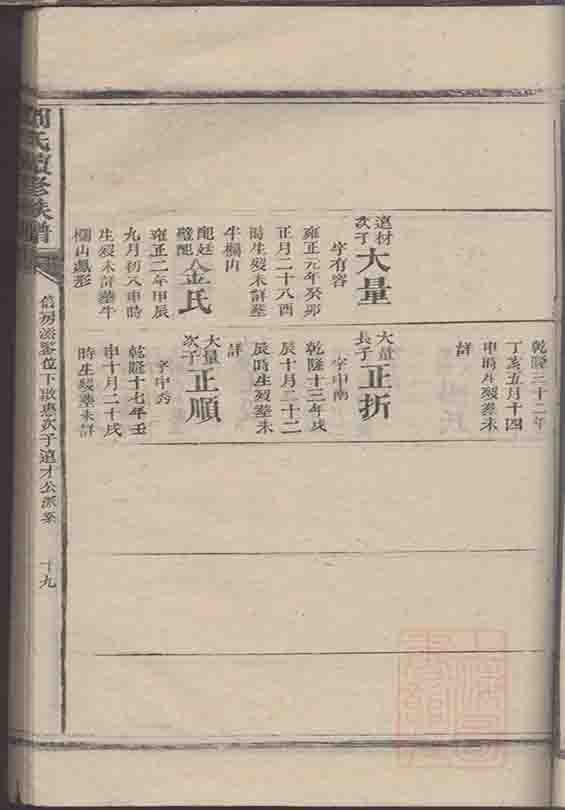 遠材
次子
大量
字有容
雍正元年癸卯
正月二十八酉
時生歿未詳塟
牛欄山
配廷
璧配
金氏
雍正二年甲辰
九月初八申時
生歿未詳塟牛
欄山鳳形
乾隆三十二年
丁亥五月十四
申時生歿塟未
詳
大量
長子
正折
字中南
乾隆十三年戊
辰十月二十二
辰時生歿塟未
詳
大量
次子
正順
字中秀
乾隆十七年壬
申十月二十戌
時生歿塟未詳
周氏續修族譜
位下啟惠次子遠才公派系
十九